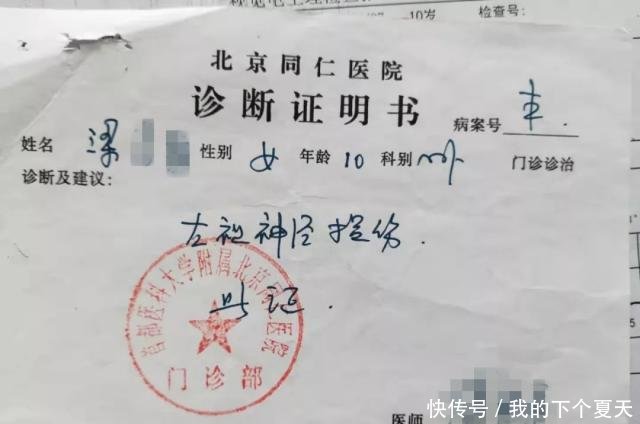 10岁 检查号:
北京同仁医院
诊断证明书
病案号
姓名 梁 性别 女 年龄 10 科别 门诊诊治
诊断及建议:
左视神经损伤.
此证.
首都医科大学附属北京同仁医院
门诊部
医师
快传号/我的下个夏天